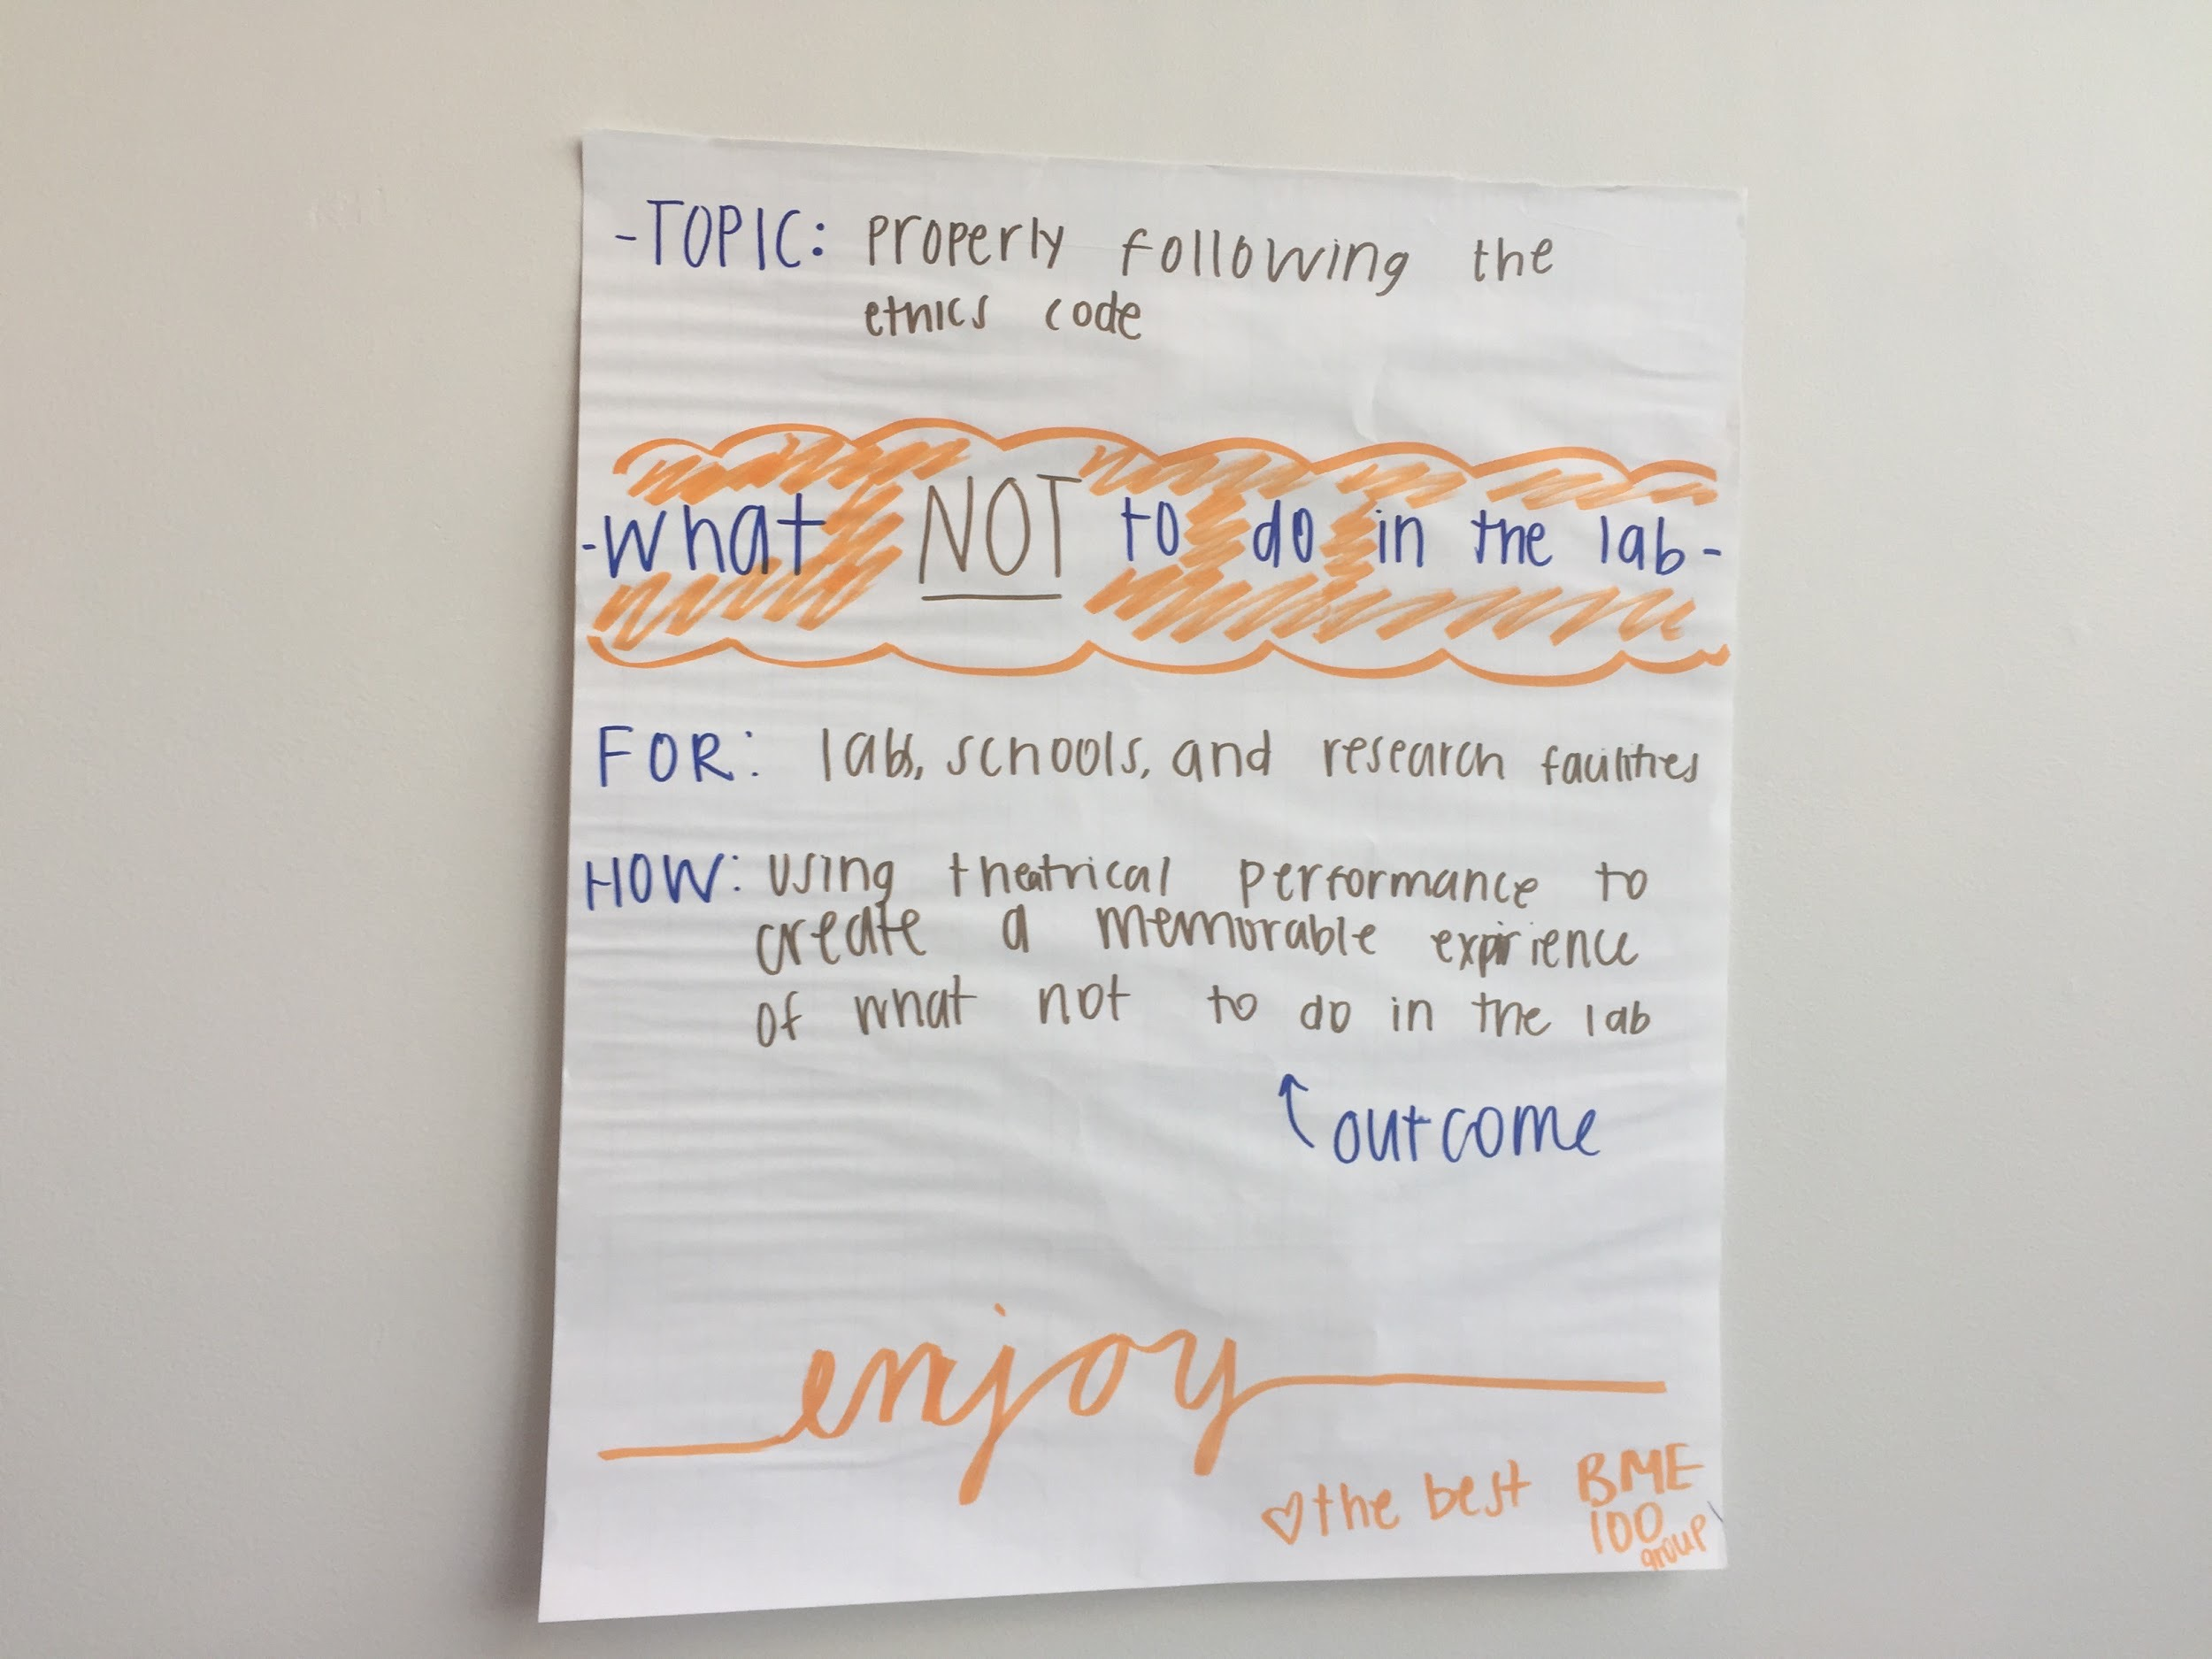 -TOPIC: properly following the
ethics code
-what NOT to do in the lab-
FOR: labs, schools, and research facilities
HOW: using theatrical performance to
create a memorable expirience
of what not to do in the lab
↑ outcome
enjoy
♡ the best BME
100
group